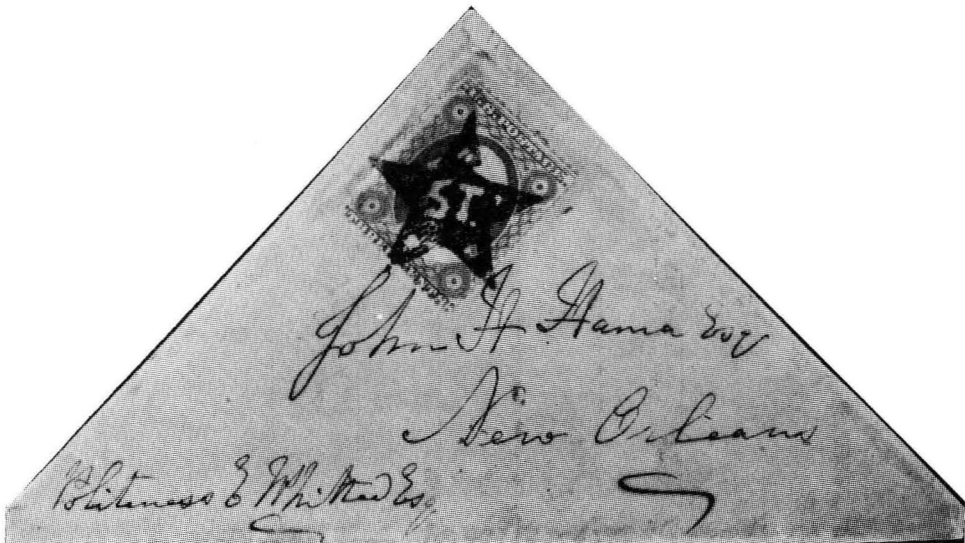 ST.
John H Hanna Esq
New Orleans
Politeness E Whitted Esq